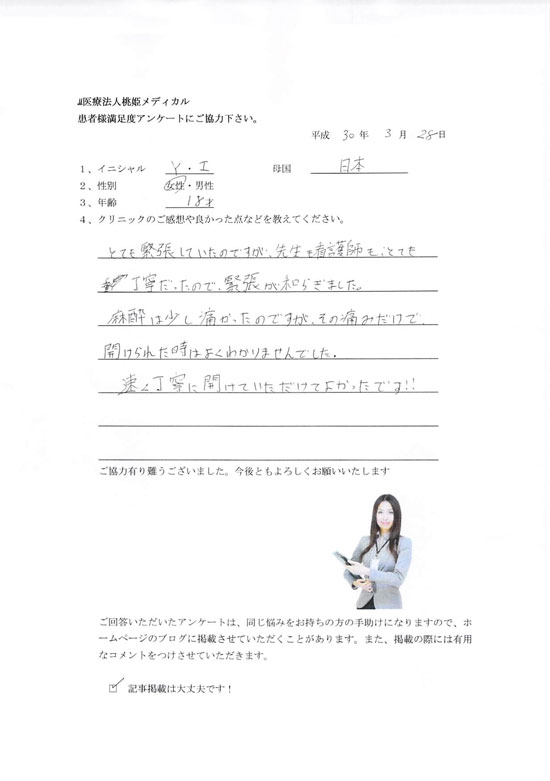 医療法人桃姫メディカル
患者様満足度アンケートにご協力下さい。
平成 30 年 3 月 28 日
1、イニシャル Y・I 母国 日本
2、性別 女性・男性
3、年齢 18才
4、クリニックのご感想や良かった点などを教えてください。
とても緊張していたのですが、先生も看護師も、とても
丁寧だったので、緊張が和らぎました。
麻酔は少し痛かったのですが、その痛みだけで、
開けられた時はよくわかりませんでした。
速く丁寧に開けていただけてよかったです!!
ご協力有り難うございました。今後ともよろしくお願いいたします
ご回答いただいたアンケートは、同じ悩みをお持ちの方の手助けになりますので、ホ
ームページのブログに掲載させていただくことがあります。また、掲載の際には有用
なコメントをつけさせていただきます。
☑ 記事掲載は大丈夫です！